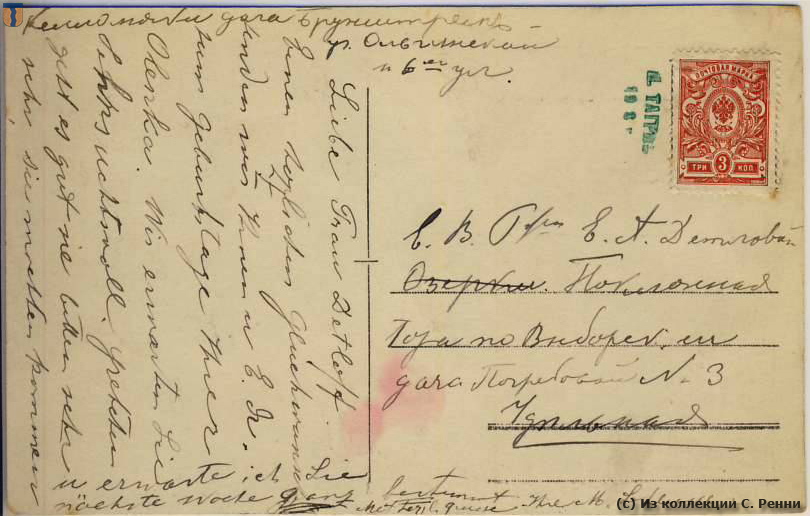 Келломяки дача Брунштрем
уг. Ольгинской
и 6ой ул.
Liebe Frau Detloff
Einen herzlichen Glückwunsch
senden wir Ihnen u E. A.
zum Geburtstage Ihrer
Olenka. Wir erwarten Sie
Sehnsuchtsvoll.
geht es gut sie bitten sehr
sehr, Sie möchten kommen
u erwarte ich Sie
nächste Woche ganz bestimmt
Ihre M.
Д. ТАГРИН
ПОЧТОВАЯ МАРКА
3
ТРИ КОП
Е. В. Г-же Е. А. Детловой
Озерки. Поклонная
Гора по Выборгск. ш
дача Погребовой № 3
Удельная
(с) Из коллекции С. Ренни